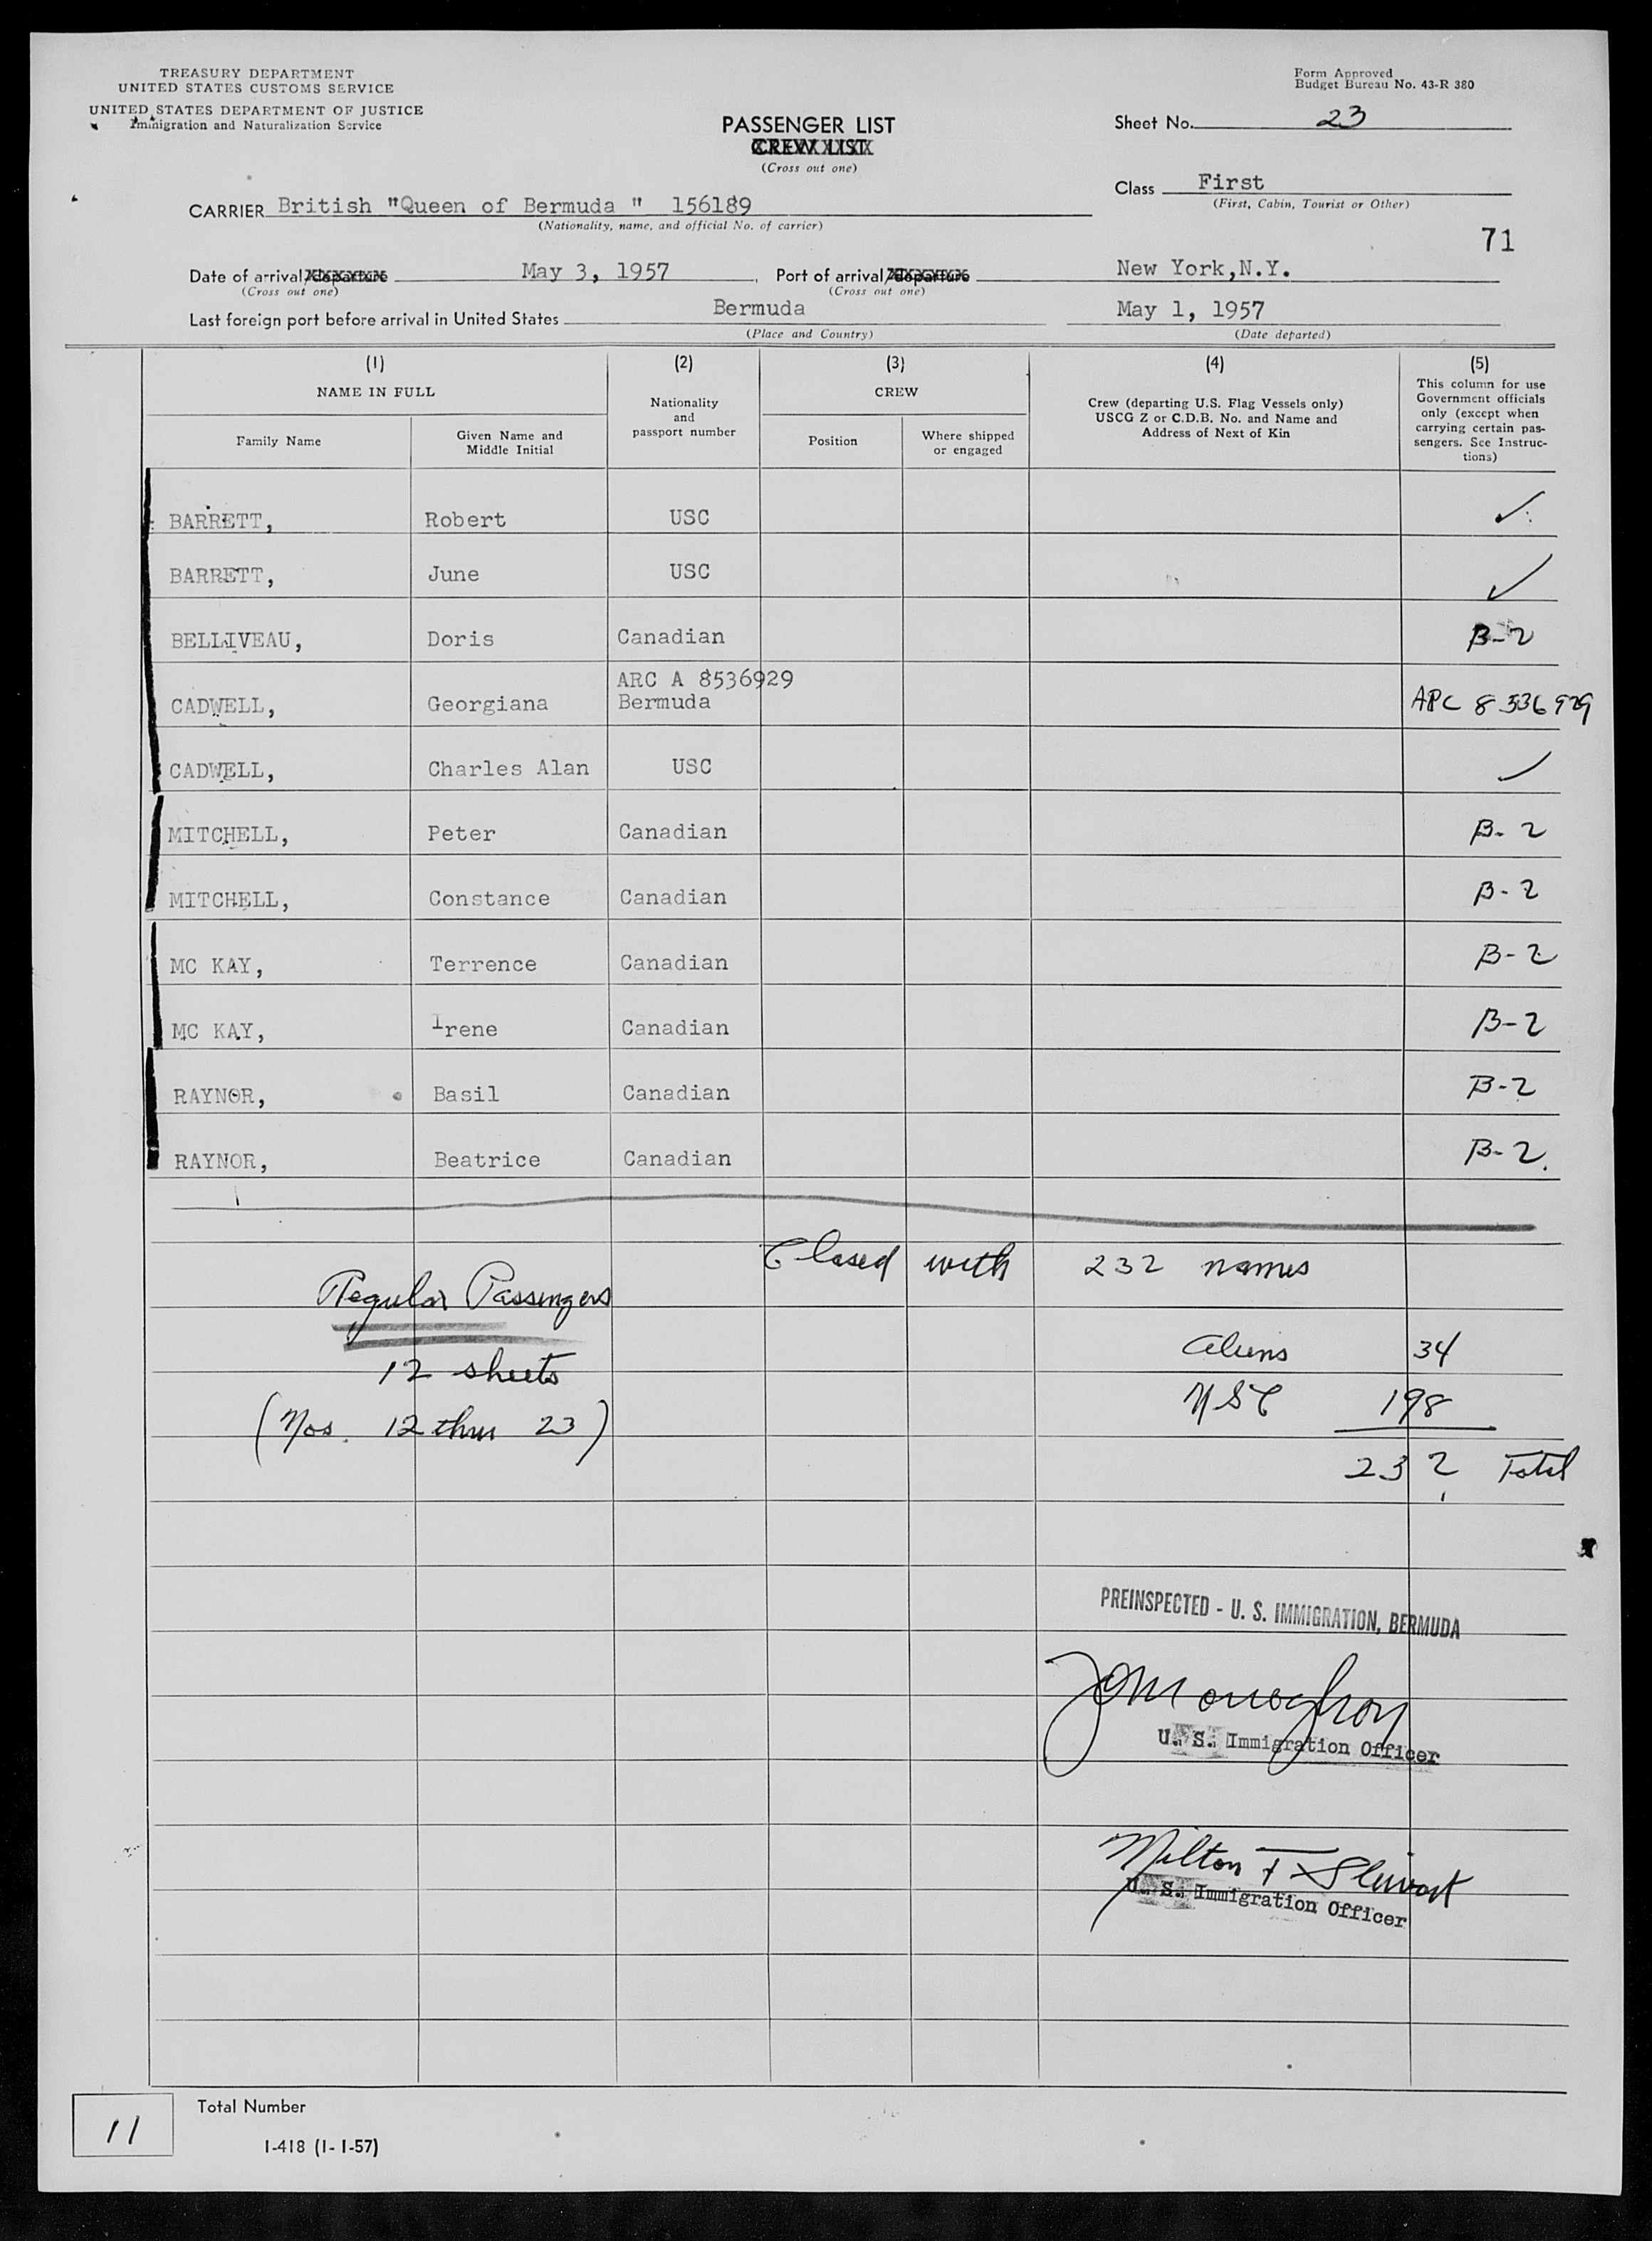 TREASURY DEPARTMENT
UNITED STATES CUSTOMS SERVICE
UNITED STATES DEPARTMENT OF JUSTICE
Immigration and Naturalization Service
Form Approved
Budget Bureau No. 43-R 380
PASSENGER LIST
CREW LIST
(Cross out one)
Sheet No. 23
Class First
(First, Cabin, Tourist or Other)
CARRIER British "Queen of Bermuda " 156189
(Nationality, name, and official No. of carrier)
71
Date of arrival/departure May 3, 1957, Port of arrival/departure New York,N.Y.
(Cross out one) (Cross out one)
Last foreign port before arrival in United States Bermuda May 1, 1957
(Place and Country) (Date departed)
(1) (2) (3) (4) (5)
NAME IN FULL
Nationality and passport number
CREW
Crew (departing U.S. Flag Vessels only)
USCG Z or C.D.B. No. and Name and
Address of Next of Kin
This column for use
Government officials
only (except when
carrying certain pas-
sengers. See Instruc-
tions)
Family Name
Given Name and
Middle Initial
Position
Where shipped
or engaged
BARRETT, Robert USC ✓
BARRETT, June USC ✓
BELLIVEAU, Doris Canadian B-2
ARC A 8536929
CADWELL, Georgiana Bermuda ARC 8 536 929
CADWELL, Charles Alan USC ✓
MITCHELL, Peter Canadian B-2
MITCHELL, Constance Canadian B-2
MC KAY, Terrence Canadian B-2
MC KAY, Irene Canadian B-2
RAYNOR, Basil Canadian B-2
RAYNOR, Beatrice Canadian B-2.
Closed with 232 names
Regular Passengers
12 sheets
(Nos. 12 thru 23)
Aliens 34
USC 198
232 Total
PREINSPECTED - U. S. IMMIGRATION, BERMUDA
U. S. Immigration Officer
Milton F Stewart
U. S. Immigration Officer
11
Total Number
I-418 (1-1-57)